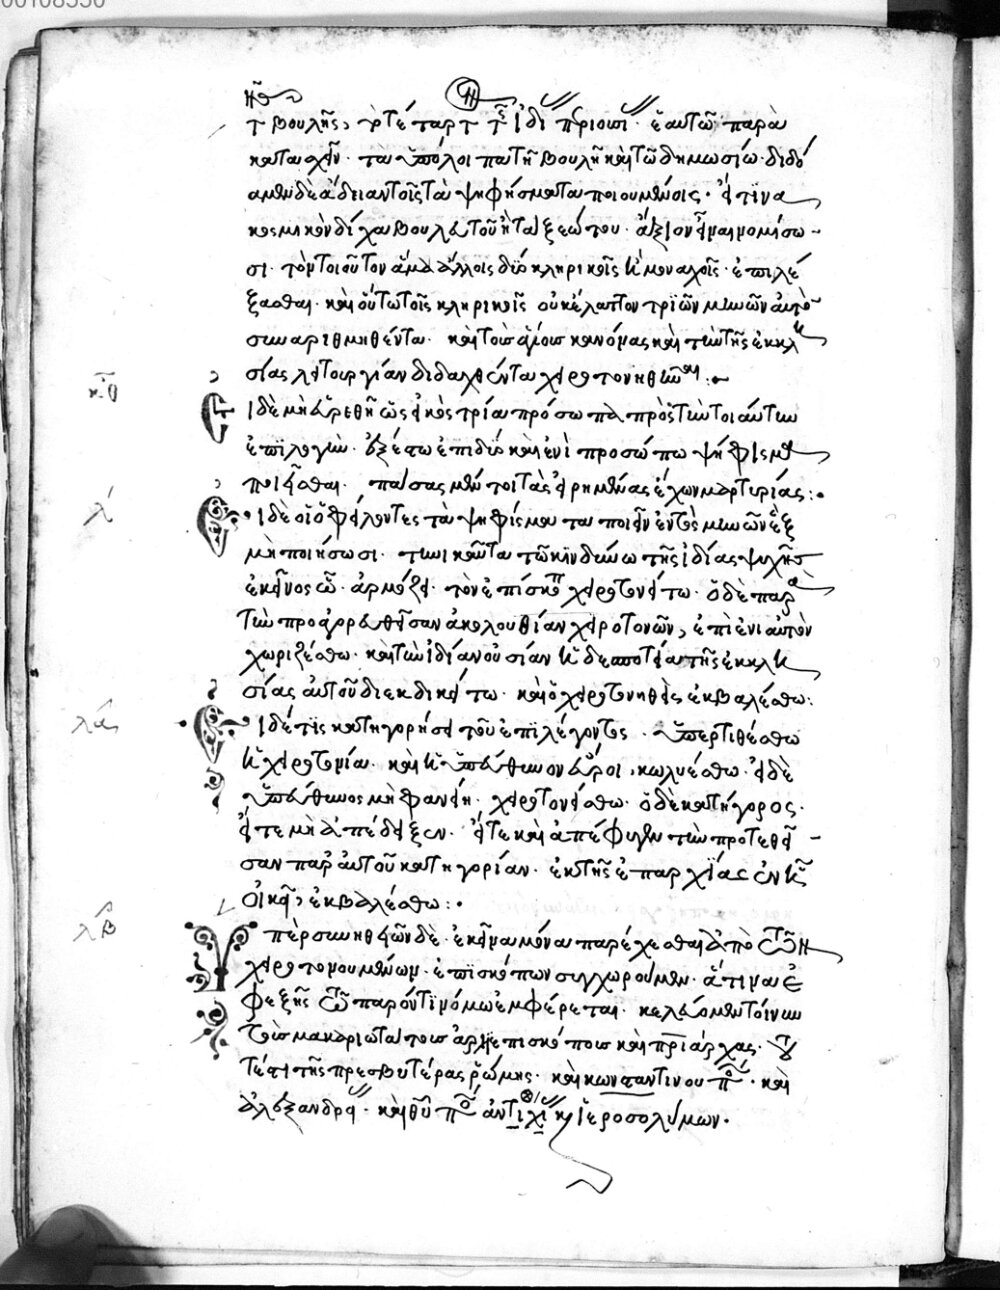 τ βουλῆς, τὸ τέταρτ τῆς ἰδί πριουσί ἑαυτῶ παρὰ
κατασχεῖν· τὰ ὑπόλοιπα τῆ βουλῆ καὶ τῶ δημωσίω· διδό
αμεν δὲ ἄδειαν τοῖς τὰ ψηφήσματα ποιουμένοις· εἴ τινα
κοσμικὸν δίχα βουλευτοῦ ἢ ταξεώτου· ἄξιον εἶναι νομίσω-
σι· τὸν τοιοῦτον ἅμα ἄλλοις δύο κληρικοῖς ἢ μοναχοῖς· ἐπιλέ
ξασθαι· καὶ οὕτω τοῖς κληρικοῖς οὐκ ἔλαττον τριῶν μηνῶν αὐτὸν
συναριθμηθέντα· καὶ τοὺς ἁγίους κανόνας καὶ τὴν τῆς ἐκκλη
σίας λειτουργίαν διδαχθέντα χειροτονηθῆναι:
κθ Εἰ δὲ μὴ εὑρεθῆ ὡς εἰκὸς τρία πρόσωπα πρὸς τὴν τοιαύτην
ἐπιλογὴν· ἐξέστω ἐπι δύο καὶ ἑνὶ προσώπω ψήφισμα
ποιεῖσθαι· πάσας μέν τοι τὰς εἰρημένας ἔχων μαρτυρίας:
λ Εἰ δὲ οἱ ὀφείλοντες τὰ ψηφίσματα ποιεῖν ἐντὸς μηνῶν ἓξ
μὴ ποιήσωσι· τηνικαῦτα τῶ κινδύνω τῆς ἰδίας ψυχῆς
ἐκεῖνος ὧ ἁρμόζει τὸν ἐπίσκοπ χειροτονείτω· ὁ δὲ παρὰ
τὴν προειρρευθεῖσαν ἀκολουθίαν χειροτονῶν, ἐπὶ ἐνιαυτὸν
χωριζέσθω· καὶ τὴν ἰδίαν οὐσίαν ἡ δεσποτεία τῆς ἐκκλη
σίας αὐτοῦ διεκδικείτω· καὶ ὁ χειροτονηθεὶς ἐκβαλέσθω:
λα Εἰ δέ τις κατηγορήσει τοῦ ἐπιλέγοντος· ὑπερτιθέσθω
ἡ χειροτονία· καὶ ἢ ὑπεύθυνον εὕροι, κωλυέσθω· εἰ δὲ
ὑπεύθυνος μὴ φανείη· χειροτονείσθω· ὁ δὲ κατήγορος·
εἴτε μὴ ἀπέδειξεν· εἴτε καὶ ἀπέφυγεν τὴν προτεθεῖ-
σαν παρ αὐτοῦ κατηγορίαν· ἐκ τῆς ἐπαρχίας ἐν ἧ
οἰκεῖ, ἐκβαλέσθω:
λβ Ὑπὲρ συνηθειῶν δὲ· ἐκεῖνα μόνα παρέχεσθαι ἀπὸ τῶν
χειροτονουμένων· ἐπισκόπων συγχωροῦμεν· ἅτινα ἐ
φεξῆς τῶ παρόντι νόμω ἐμφέρεται· κελεύομεν τοίνυν
τοὺς μακαριωτάτους ἀρχιεπισκόπους καὶ πριάρχας·
τέστι τῆς πρεσβυτέρας ῥώμης· καὶ κωνσταντινουπο· καὶ
ἀλεξανδρεί· καὶ θυπο ἀντιχί κ ἱεροσολύμων·